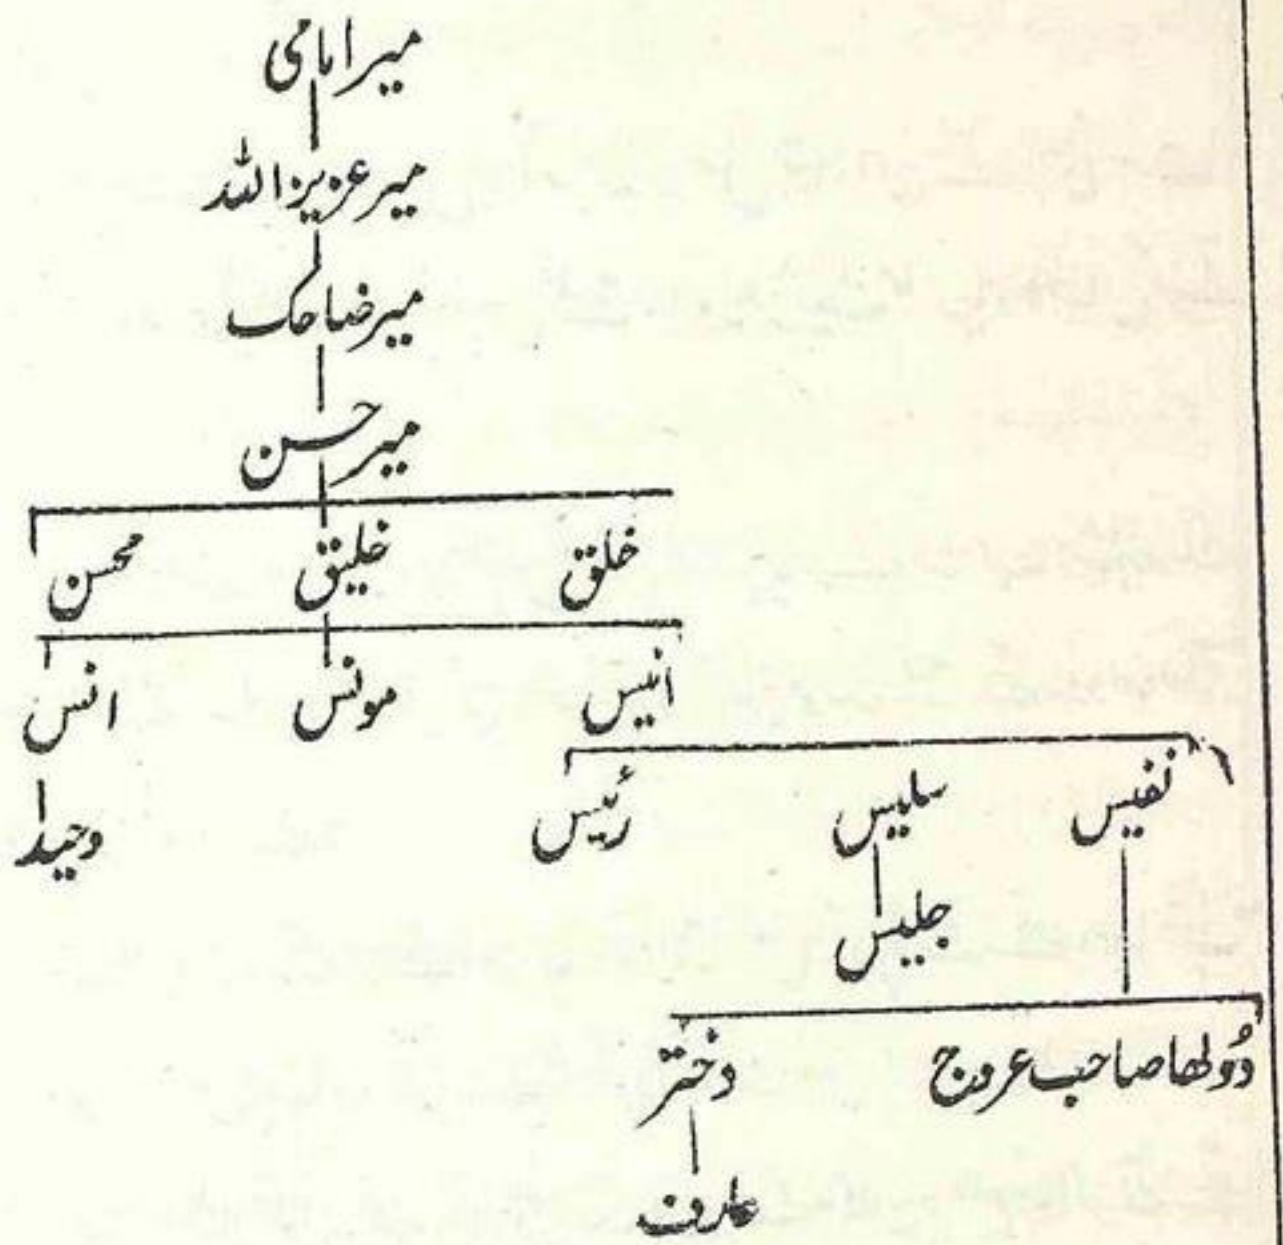 میر امامی
میر عزیز اللہ
میر ضاحک
میر حسن
خلق خلیق محسن
انیس مونس انس
نفیس سلیس رئیس وحید
جلیس
دُولھا صاحب عروج دختر
عارف